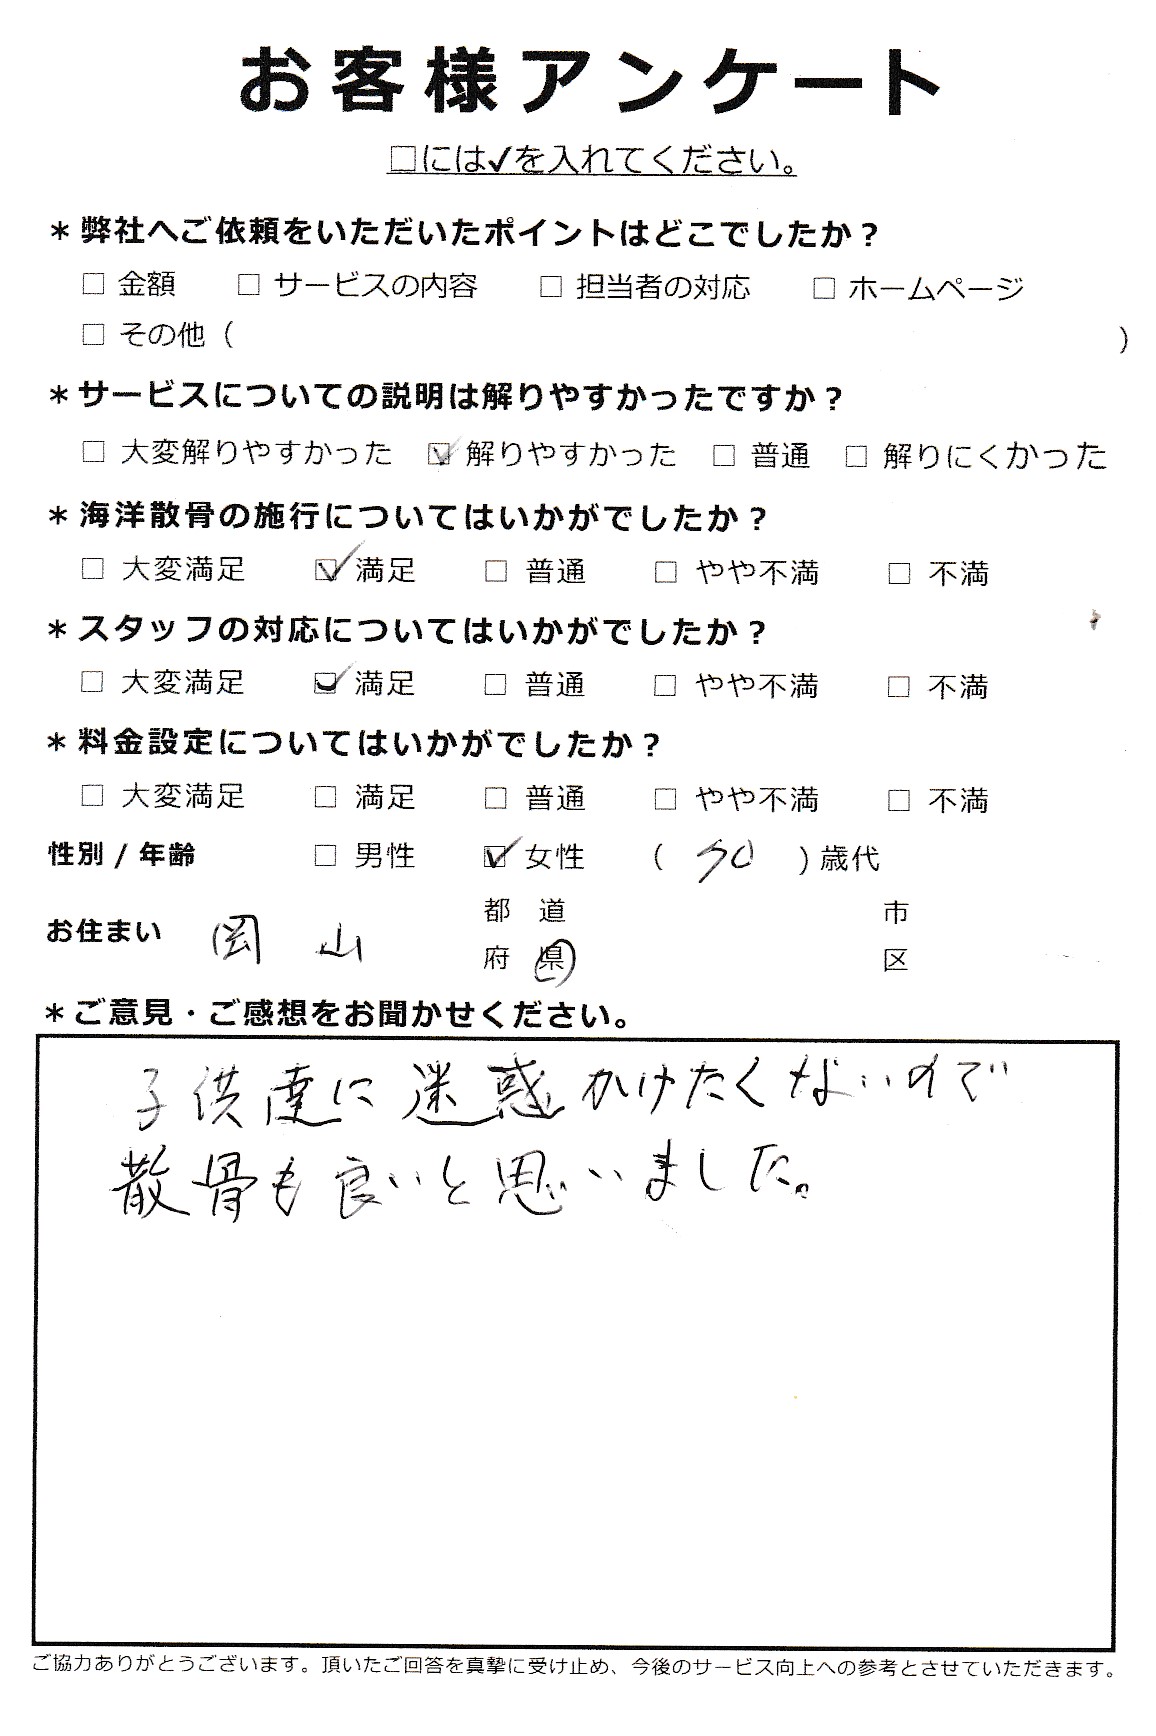 お客様アンケート
□には✓を入れてください。
＊弊社へご依頼をいただいたポイントはどこでしたか？
□ 金額 □ サービスの内容 □ 担当者の対応 □ ホームページ
□ その他（ ）
＊サービスについての説明は解りやすかったですか？
□ 大変解りやすかった ☑ 解りやすかった □ 普通 □ 解りにくかった
＊海洋散骨の施行についてはいかがでしたか？
□ 大変満足 ☑ 満足 □ 普通 □ やや不満 □ 不満
＊スタッフの対応についてはいかがでしたか？
□ 大変満足 ☑ 満足 □ 普通 □ やや不満 □ 不満
＊料金設定についてはいかがでしたか？
□ 大変満足 □ 満足 □ 普通 □ やや不満 □ 不満
性別 / 年齢 □ 男性 ☑ 女性 ( ) 歳代
お住まい 岡山 都 道 府 県 市 区
＊ご意見・ご感想をお聞かせください。
子供達に迷惑かけたくないので
散骨も良いと思いました。
ご協力ありがとうございます。頂いたご回答を真摯に受け止め、今後のサービス向上への参考とさせていただきます。